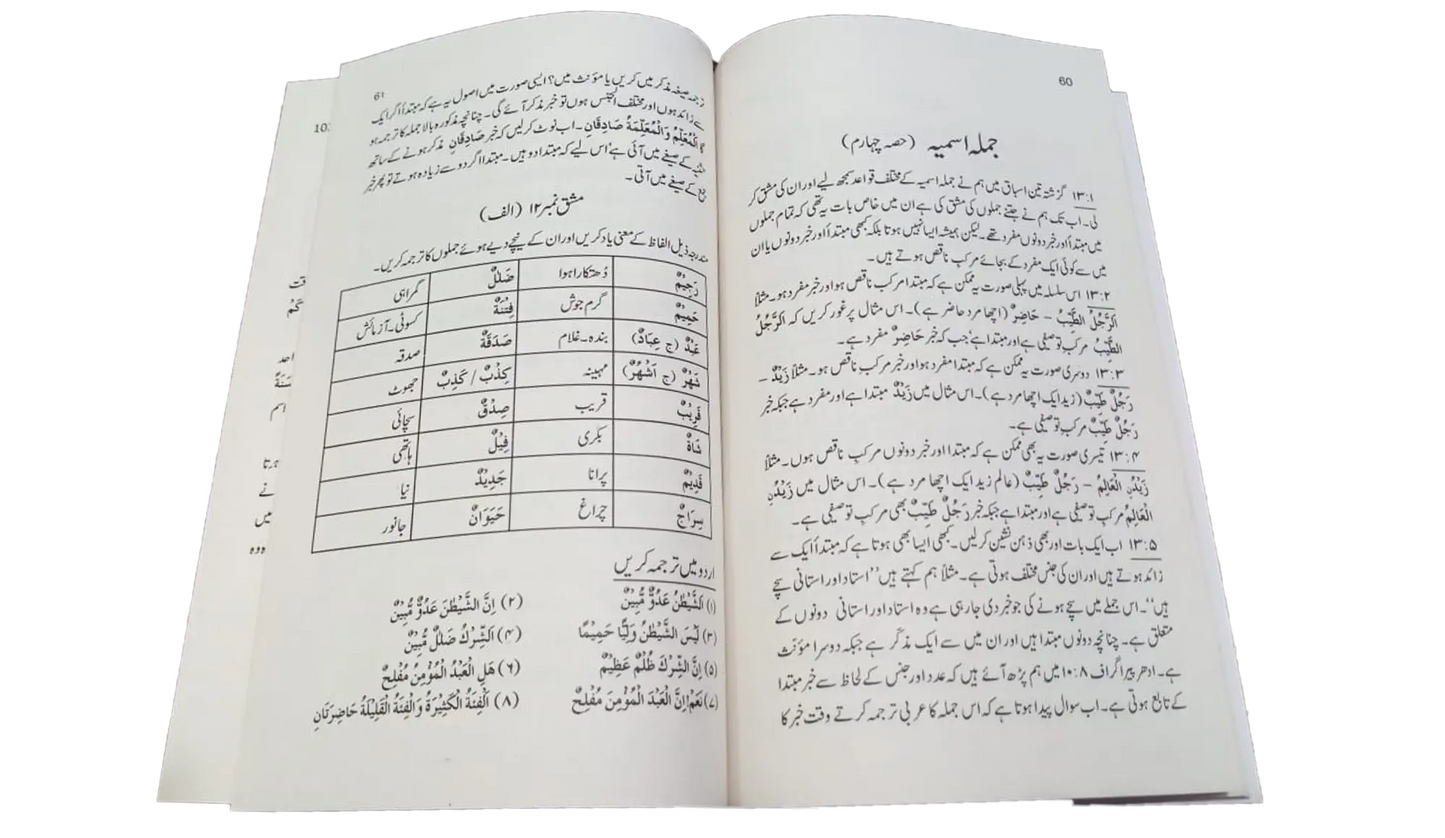 60
جملہ اسمیہ (حصہ چہارم)
۱۳:۱ گزشتہ تین اسباق میں ہم نے جملہ اسمیہ کے مختلف قواعد سمجھ لیے اور ان کی مشق کر
لی۔ اب تک ہم نے جتنے جملوں کی مشق کی ہے ان میں خاص بات یہ تھی کہ تمام جملوں
میں مبتدأ اور خبر دونوں مفرد تھے۔ لیکن ہمیشہ ایسا نہیں ہوتا بلکہ کبھی مبتدأ اور خبر دونوں یا ان
میں سے کوئی ایک مفرد کے بجائے مرکب ناقص ہوتے ہیں۔
۱۳:۲ اس سلسلہ میں پہلی صورت یہ ممکن ہے کہ مبتدا مرکب ناقص ہو اور خبر مفرد ہو۔ مثلاً
اَلرَّجُلُ الطَّيِّبُ – حَاضِرٌ (اچھا مرد حاضر ہے)۔ اس مثال پر غور کریں کہ اَلرَّجُلُ
الطَّيِّبُ مرکب توصیفی ہے اور مبتدا ہے‘ جب کہ خبر حَاضِرٌ مفرد ہے۔
۱۳:۳ دوسری صورت یہ ممکن ہے کہ مبتدا مفرد ہو اور خبر مرکب ناقص ہو۔ مثلاً زَيْدٌ –
رَجُلٌ طَيِّبٌ (زید ایک اچھا مرد ہے)۔ اس مثال میں زَيْدٌ مبتدا ہے اور مفرد ہے جبکہ خبر
رَجُلٌ طَيِّبٌ مرکب توصیفی ہے۔
۱۳:۴ تیسری صورت یہ بھی ممکن ہے کہ مبتدا اور خبر دونوں مرکب ناقص ہوں۔ مثلاً
زَيْدُنِ الْعَالِمُ – رَجُلٌ طَيِّبٌ (عالم زید ایک اچھا مرد ہے)۔ اس مثال میں زَيْدُنِ
الْعَالِمُ مرکب توصیفی ہے اور مبتدا ہے جبکہ خبر رَجُلٌ طَيِّبٌ بھی مرکب توصیفی ہے۔
۱۳:۵ اب ایک بات اور بھی ذہن نشین کر لیں۔ کبھی ایسا بھی ہوتا ہے کہ مبتدأ ایک سے
زائد ہوتے ہیں اور ان کی جنس مختلف ہوتی ہے۔ مثلاً ہم کہتے ہیں ’’استاد اور استانی سچے
ہیں‘‘۔ اس جملے میں سچے ہونے کی جو خبر دی جا رہی ہے وہ استاد اور استانی دونوں کے
متعلق ہے۔ چنانچہ دونوں مبتدا ہیں اور ان میں سے ایک مذکّر ہے جبکہ دوسرا مؤنّث
ہے۔ ادھر پیراگراف ۱۰:۸ میں ہم پڑھ آئے ہیں کہ عدد اور جنس کے لحاظ سے خبر مبتدا
کے تابع ہوتی ہے۔ اب سوال پیدا ہوتا ہے کہ اس جملہ کا عربی ترجمہ کرتے وقت خبر کا
61
ترجمہ صیغہ مذکر میں کریں یا مؤنث میں؟ ایسی صورت میں اصول یہ ہے کہ مبتدأ اگر ایک
سے زائد ہوں اور مختلف الجنس ہوں تو خبر مذکر آئے گی۔ چنانچہ مذکورہ بالا جملہ کا ترجمہ ہو
گا اَلْمُعَلِّمُ وَالْمُعَلِّمَةُ صَادِقَانِ۔ اب نوٹ کر لیں کہ خبر صَادِقَانِ مذکر ہونے کے ساتھ
تثنیہ کے صیغے میں آئی ہے‘ اس لیے کہ مبتدا دو ہیں۔ مبتدا اگر دو سے زیادہ ہوتے تو پھر خبر
جمع کے صیغے میں آتی۔
مشق نمبر ۱۲ (الف)
مندرجہ ذیل الفاظ کے معنی یاد کریں اور ان کے نیچے دیے ہوئے جملوں کا ترجمہ کریں۔
رَجِيْمٌ دُھتکارا ہوا ضَلٰلٌ گمراہی
حَمِيْمٌ گرم جوش فِتْنَةٌ کسوٹی۔آزمائش
عَبْدٌ (ج عِبَادٌ) بندہ۔غلام صَدَقَةٌ صدقہ
شَهْرٌ (ج اَشْهُرٌ) مہینہ كِذْبٌ / كَذِبٌ جھوٹ
قَرِيْبٌ قریب صِدْقٌ سچائی
شَاةٌ بکری فِيْلٌ ہاتھی
قَدِيْمٌ پرانا جَدِيْدٌ نیا
سِرَاجٌ چراغ حَيَوَانٌ جانور
اردو میں ترجمہ کریں
(۱) اَلشَّيْطٰنُ عَدُوٌّ مُّبِيْنٌ (۲) اِنَّ الشَّيْطٰنَ عَدُوٌّ مُّبِيْنٌ
(۳) لَيْسَ الشَّيْطٰنُ وَلِيًّا حَمِيْمًا (۴) اَلشِّرْكُ ضَلٰلٌ مُّبِيْنٌ
(۵) اِنَّ الشِّرْكَ ظُلْمٌ عَظِيْمٌ (۶) هَلِ الْعَبْدُ الْمُؤْمِنُ مُفْلِحٌ
(۷) نَعَمْ! اِنَّ الْعَبْدَ الْمُؤْمِنَ مُفْلِحٌ (۸) اَلْفِئَةُ الْكَثِيْرَةُ وَالْفِئَةُ الْقَلِيْلَةُ حَاضِرَتَانِ